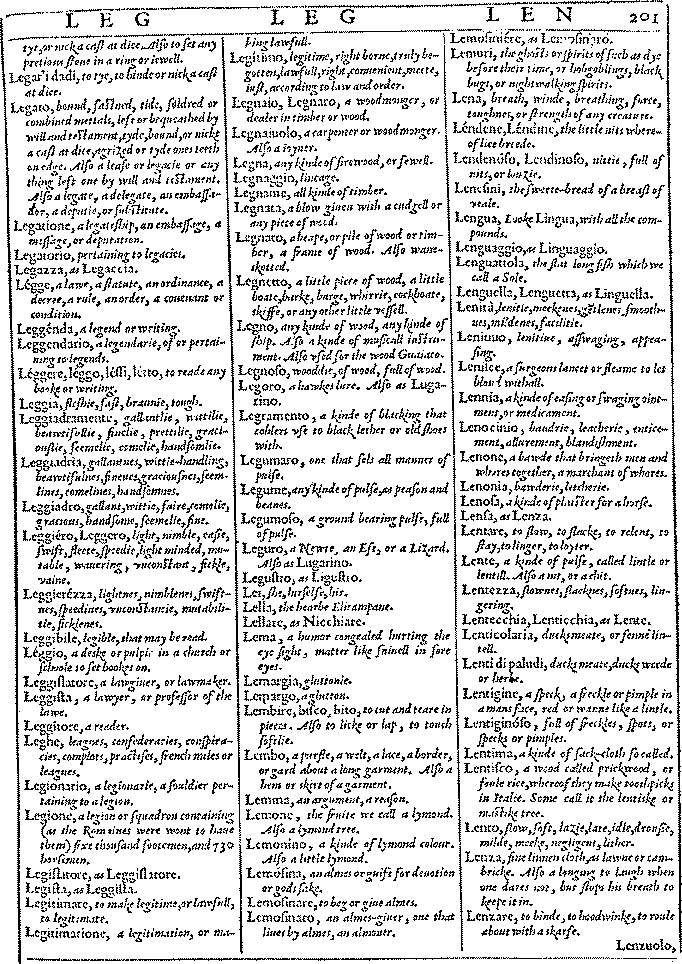 LEG LEG LEN 201
tye, or nick a cast at dice. Also to set any
pretious stone in a ring or iewell.
Legar'i dadi, to tye, to binde or nick a cast
at dice.
Legato, bound, fastned, tide, soldred or
combined mettals, left or bequeathed by
will and testament, tyde, bound, or nickt
a cast at dice, agrized or tyde ones teeth
on edge. Also a lease or legacie or any
thing left one by will and testament.
Also a legate, a delegate, an embassa-
dor, a deputie, or substitute.
Legatione, a legateship, an embassage, a
message, or deputation.
Legatorio, pertaining to legacies.
Legazza, as Legaccia.
Légge, a lawe, a statute, an ordinance, a
decree, a rule, an order, a couenant or
condition.
Leggénda, a legend or writing.
Leggendario, a legendarie, of or pertai-
ning to legends.
Léggere, leggo, lèssi, letto, to reade any
booke or writing.
Leggia, fleshie, fast, brannie, tough.
Leggiadramente, gallantlie, wittilie,
beawtifullie, finelie, prettilie, graci-
ouslie, seemelie, comelie, handsomlie.
Leggiadria, gallantnes, wittie-handling,
beawtifulnes, finenes, graciousnes, seem-
lines, comelines, handsomnes.
Leggiadro, gallant, wittie, faire, comelie,
gracious, handsome, seemelie, fine.
Leggiéro, Leggero, light, nimble, easie,
swift, fleete, speedie, light minded, mu-
table, wauering, vnconstant, fickle,
vaine.
Leggierézza, lightnes, nimblenes, swift-
nes, speedines, vnconstancie, mutabili-
tie, ficklenes.
Leggibile, legible, that may be read.
Léggio, a deske or pulpit in a church or
schoole to set bookes on.
Leggislatore, a lawgiuer, or lawmaker.
Leggista, a lawyer, or professor of the
lawe.
Leggitore, a reader.
Leghe, leagues, confederacies, conspira-
cies, complots, practises, french miles or
leagues.
Legionario, a legionarie, a souldier per-
taining to a legion.
Legione, a legion or squadron containing
(as the Romaines were wont to haue
them) sixe thousand footemen, and 730
horsmen.
Legislatore, as Leggislatore.
Legista, as Leggista.
Legitimare, to make legitime, or lawfull,
to legitimate.
Legitimatione, a legitimation, or ma-
king lawfull.
Legitimo, legitime, right borne, truly be-
gotten, lawfull, right, conuenient, meete,
iust, according to law and order.
Legnaio, Legnaro, a woodmonger, or
dealer in timber or wood.
Legnaiuolo, a carpenter or woodmonger.
Also a ioyner.
Legna, any kinde of firewood, or fewell.
Legnaggio, lineage.
Legname, all kinde of timber.
Legnata, a blow giuen with a cudgell or
any piece of wood.
Legnato, a heape, or pile of wood or tim-
ber, a frame of wood. Also wane-
skotted.
Legnetto, a little piece of wood, a little
boate, barke, barge, whirrie, cockboate,
skiffe, or any other little vessell.
Legno, any kinde of wood, any kinde of
ship. Also a kinde of musicall instru-
ment. Also vsed for the wood Guaiaco.
Legnoso, wooddie, of wood, full of wood.
Legoro, a hawkes lure. Also as Luga-
rino.
Legramento, a kinde of blacking that
coblers vse to black lether or old shoes
with.
Legumaro, one that sels all manner of
pulse.
Legume, any kinde of pulse, as peason and
beanes.
Legumoso, a ground bearing pulse, full
of pulse.
Leguro, a Newte, an Eft, or a Lizard.
Also as Lugarino.
Legustio, as Ligustio.
Lei, she, hirselfe, hir.
Lella, the hearbe Elicampane.
Lellare, as Nicchiare.
Lema, a humor congealed hurting the
eye sight, matter like sniuell in sore
eyes.
Lemargia, gluttonie.
Lemargo, a glutton.
Lembire, bisco, bito, to cut and teare in
pieces. Also to licke or lap, to touch
softlie.
Lembo, a purfle, a welt, a lace, a border,
or gard about a long garment. Also a
hem or skirt of a garment.
Lemma, an argument, a reason.
Lemone, the fruite we call a lymond.
Also a lymond tree.
Lemonino, a kinde of lymond colour.
Also a little lymond.
Lemósina, an almes or guift for deuotion
or gods sake.
Lemosinare, to beg or giue almes.
Lemosinato, an almes-giuer, one that
liues by almes, an almoner.
Lemosiniére, as Lemosinaro.
Lemuri, the ghosts or spirits of such as dye
before their time, or hobgoblings, black
bugs, or nightwalking spirits.
Lena, breath, winde, breathing, force,
toughnes, or strength of any creature.
Léndene, Léndine, the little nits where-
of lice breede.
Lendenóso, Lendinoso, nittie, full of
nits, or lowzie.
Lenesini, the sweete-bread of a breast of
veale.
Lengua, Looke Lingua, with all the com-
pounds.
Lenguaggio, as Linguaggio.
Lenguattola, the flat long fish which we
call a Sole.
Lenguella, Lenguetta, as Linguella.
Lenità, lenitie, meeknes, gētlenes, smooth-
nes, mildenes, facilitie.
Lenitiuo, lenitiue, asswaging, appea-
sing.
Lenlice, a surgeons lancet or fleame to let
blood withall.
Lennia, a kinde of easing or swaging oint-
ment, or medicament.
Lenocinio, baudrie, leacherie, entice-
ment, allurement, blandishment.
Lenone, a bawde that bringeth men and
whores together, a marchant of whores.
Lenonia, bawderie, letcherie.
Lenosa, a kinde of pluister for a horse.
Lensa, as Lenza.
Lentare, to slow, to slacke, to relent, to
stay, to linger, to loyter.
Lente, a kinde of pulse, called lintle or
lentill. Also a nit, or a chit.
Lentezza, slownes, slacknes, softnes, lin-
gering.
Lentecchia, Lenticchia, as Lente.
Lenticolaria, ducksmeate, or fenne lin-
tell.
Lenti di paludi, ducks meate, ducks weede
or herbe.
Lentigine, a speck, a freckle or pimple in
a mans face, red or warne like a lintle.
Lentiginóso, full of freckles, spots, or
specks or pimples.
Lentima, a kinde of sack-cloth so called.
Lentisco, a wood called prickwood, or
foule rice, whereof they make toothpicks
in Italie. Some call it the lentiske or
mastike tree.
Lento, slow, soft, lazie, late, idle, drousie,
milde, meeke, negligent, lither.
Lenza, fine linnen cloth, as lawne or cam-
bricke. Also a longing to laugh when
one dares not, but stops his breath to
keepe it in.
Lenzare, to binde, to hoodwinke, to roule
about with a skarfe.
Lenzuolo,